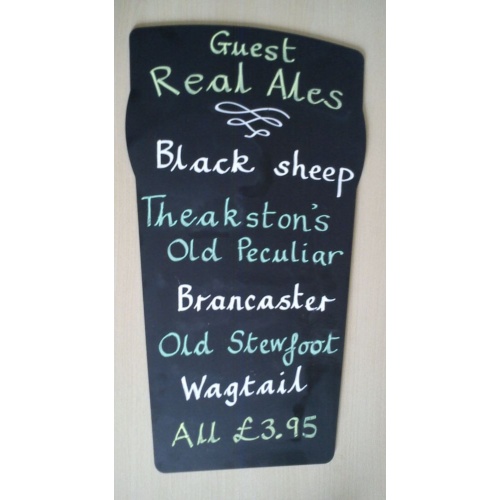 Guest
Real Ales
Black sheep
Theakston's
Old Peculiar
Brancaster
Old Stewfoot
Wagtail
All £3.95